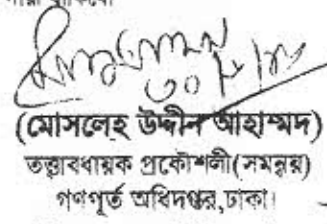 ৩০/৮/১০
(মোসলেহ উদ্দীন আহাম্মদ)
তত্ত্বাবধায়ক প্রকৌশলী(সমন্বয়)
গণপূর্ত অধিদপ্তর,ঢাকা।